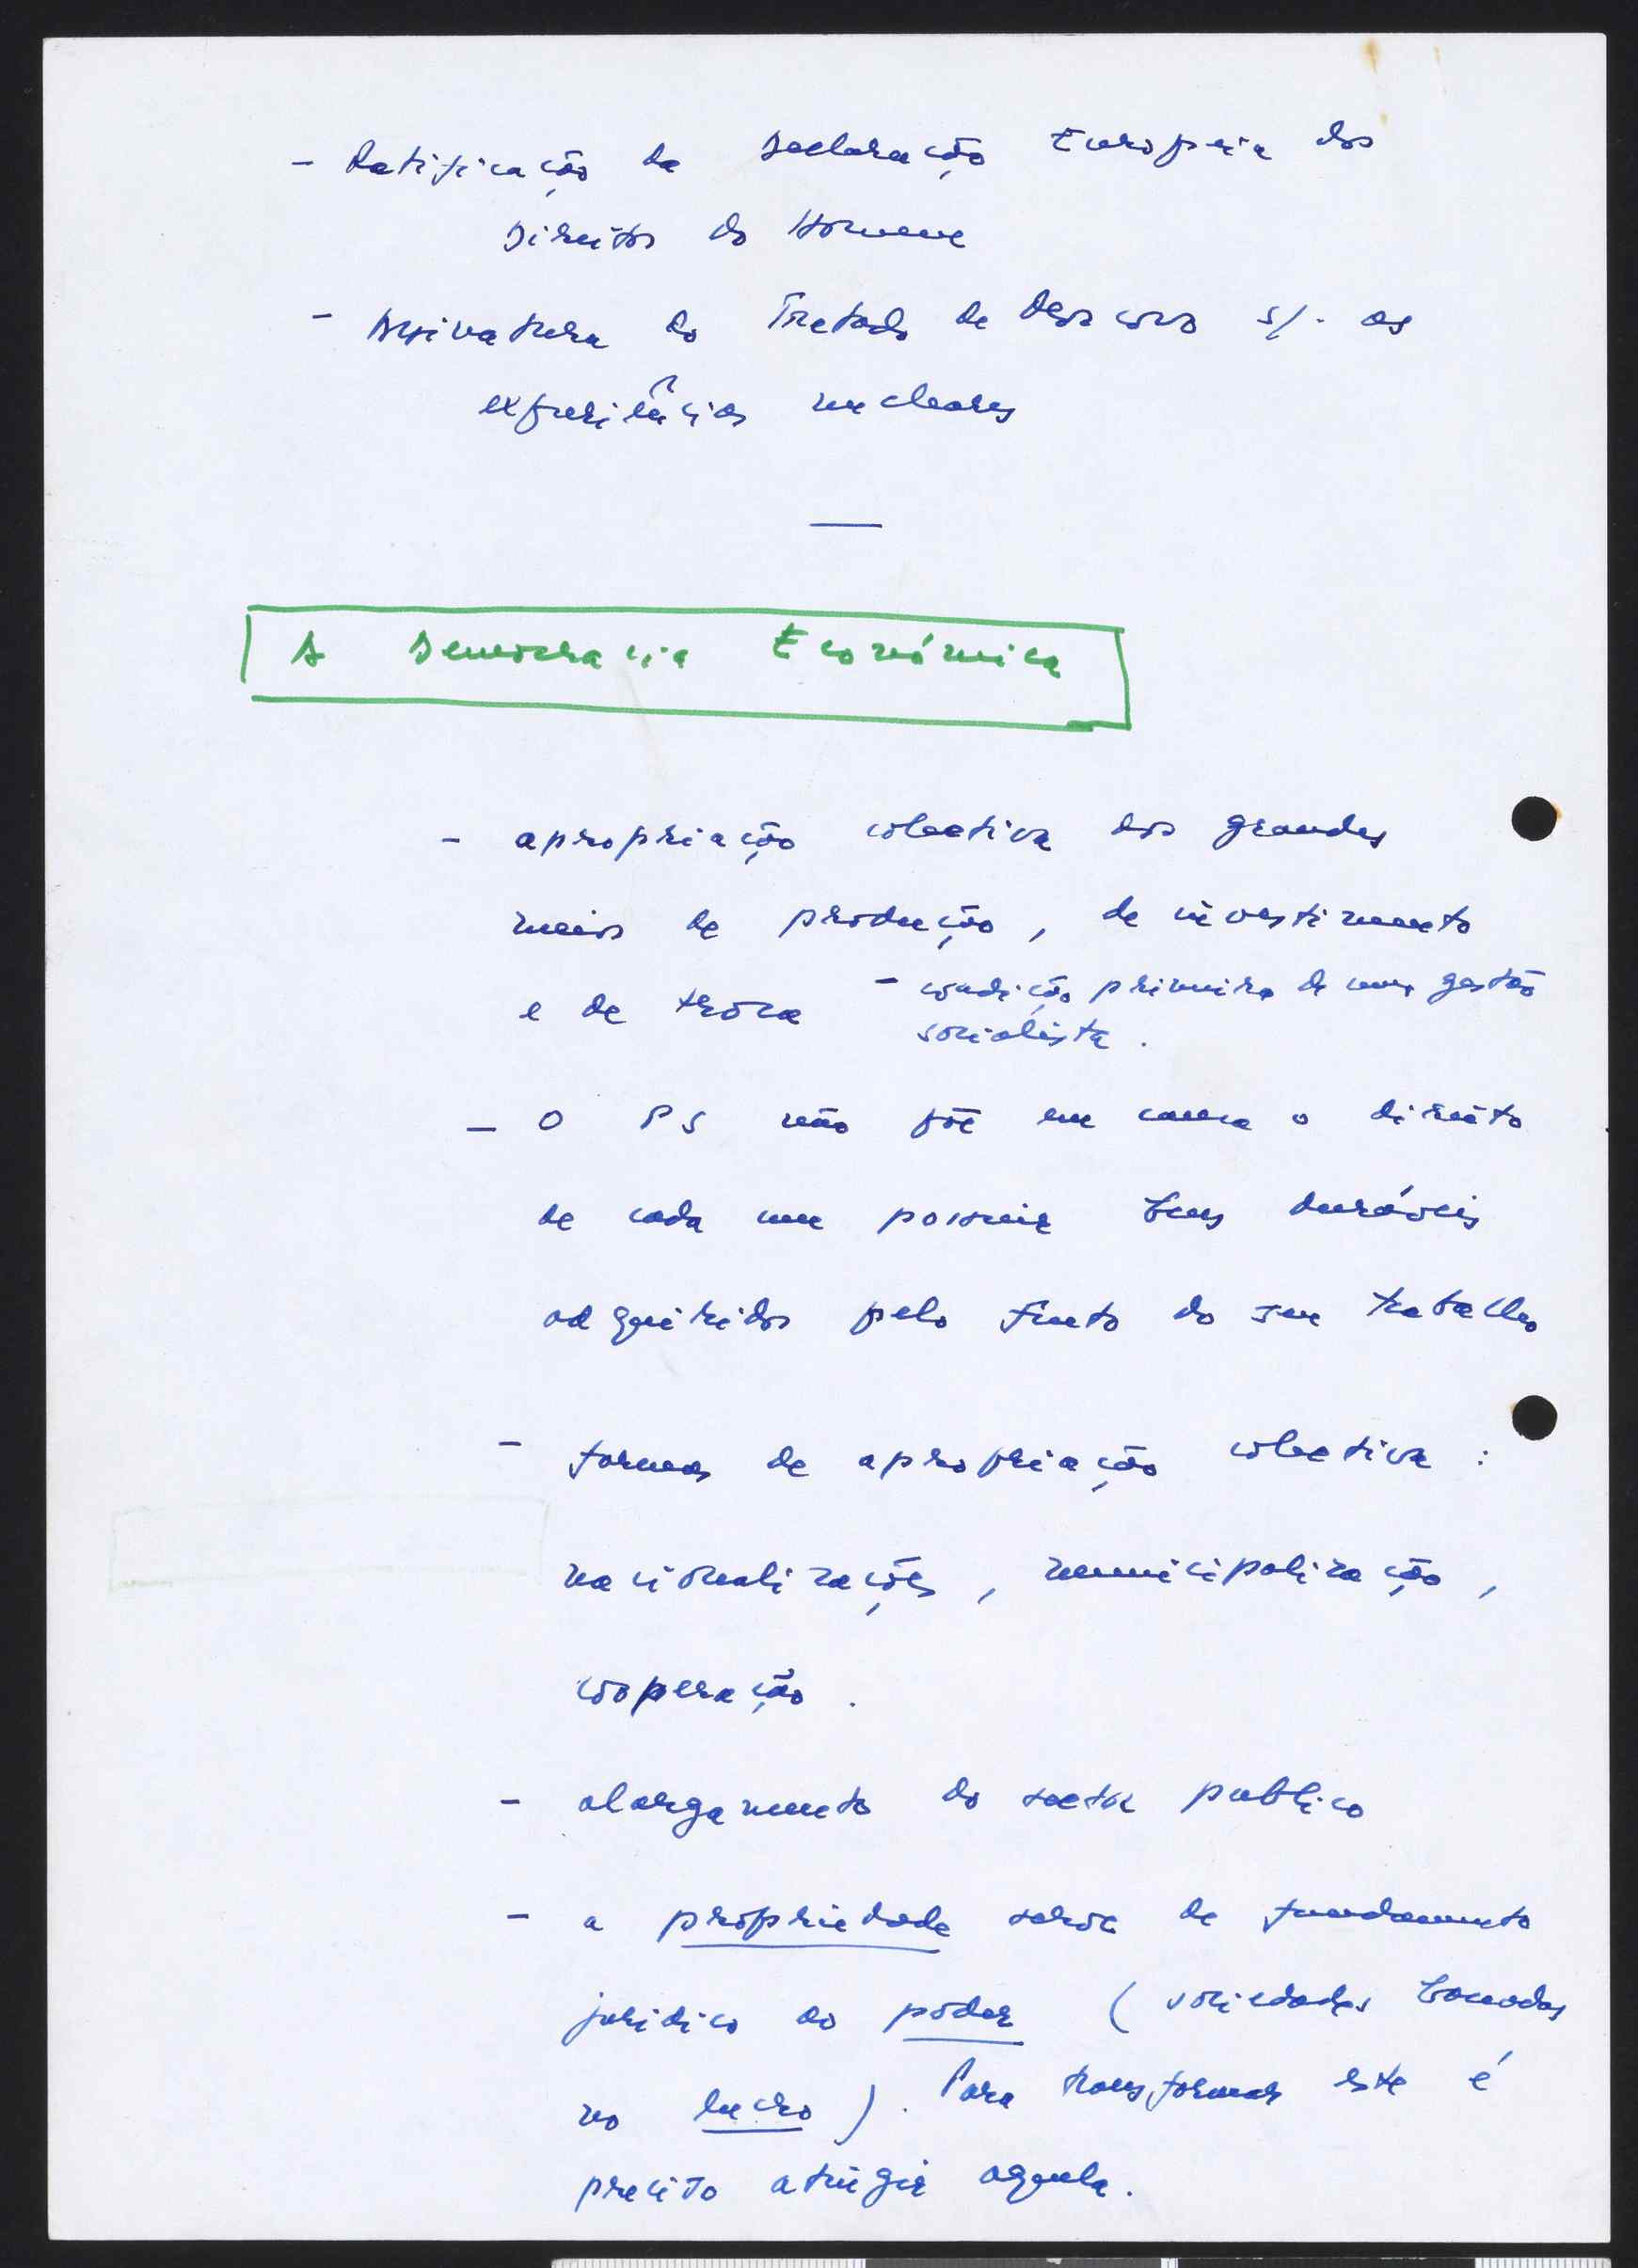 - Ratificação da Declaração Europeia dos
Direitos do Homem
- Assinatura do Tratado de Moscovo s/. as
experiências nucleares
A Democracia Económica
- apropriação colectiva dos grandes
meios de produção, de investimento
e de troca - condição primeira de uma gestão
socialista.
- O PS não põe em causa o direito
de cada um possuir bens duráveis
adquiridos pelo fruto do seu trabalho
- formas de apropriação colectiva :
nacionalizações, municipalização,
cooperação.
- alargamento do sector publico
- a propriedade serve de fundamento
juridico ao poder (sociedades baseadas
no lucro). Para transformar este é
preciso atingir aquela.